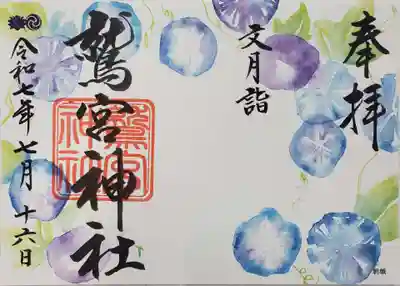 奉拝
文月詣
鷲宮神社
鷲宮
神社
令和七年七月十六日